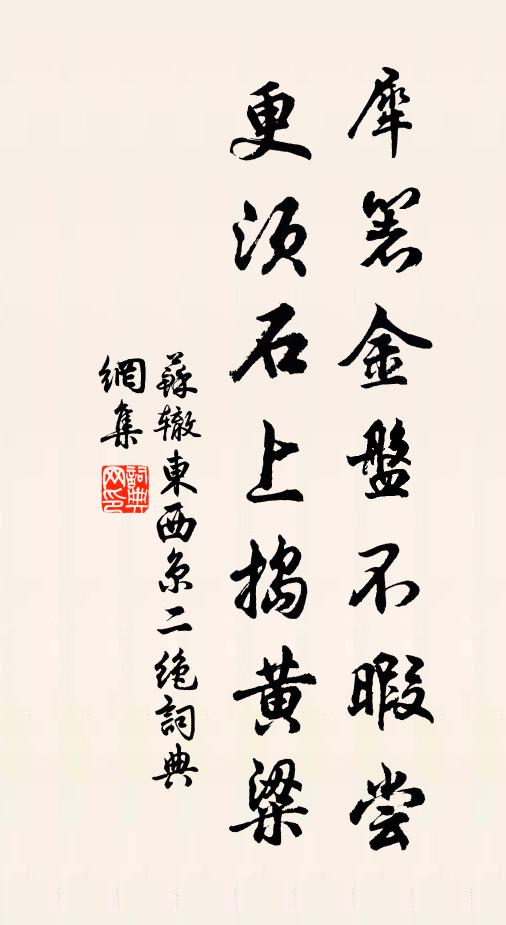 犀箸金盤不暇尝
更須石上搗黄粱
蘇轍東西京二绝詞典
網集
詞典
网印